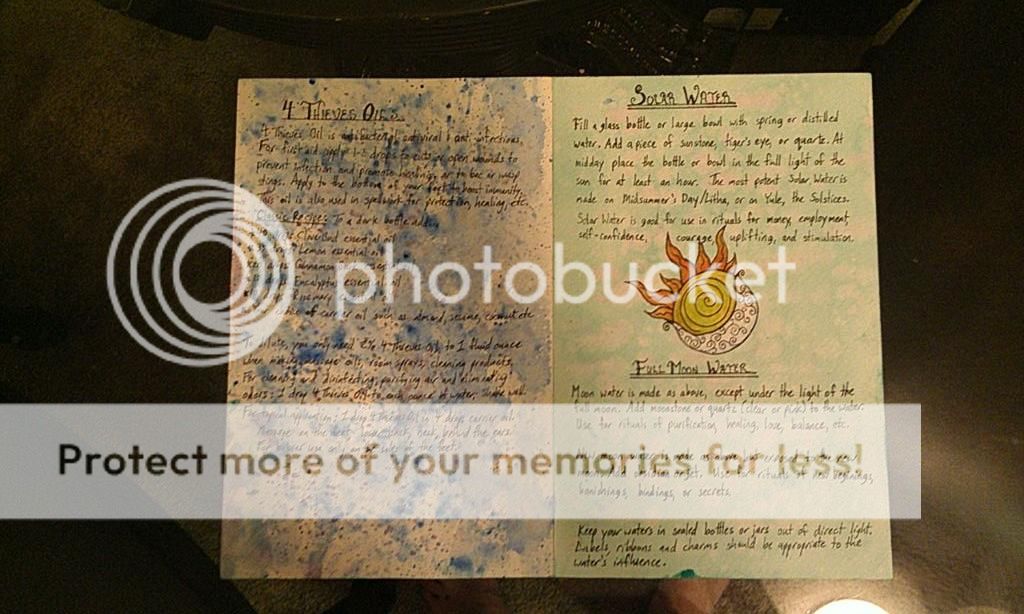 4 Thieves Oil
4 Thieves Oil is antibacterial, antiviral & anti-infectious.
For first aid apply 1-2 drops to cuts or open wounds to
prevent infection and promote healing, or to bee or wasp
stings. Apply to the bottom of your feet to boost immunity.
This oil is also used in spellwork for protection, healing, etc.
Classic Recipe: To a dark bottle add
Clove Bud essential oil
Lemon essential oil
Cinnamon
Eucalyptus essential oil
Rosemary
of carrier oil such as almond, sesame, coconut etc
To dilute, you only need 4 Thieves Oil to 1 fluid ounce
when making massage oils, room sprays, cleaning products,
For cleaning and disinfecting, purifying air and eliminating
odors: 1 drop 4 Thieves Oil to each ounce of water. Shake well.
For topical application: 1 drop 4 Thieves Oil 4 drops carrier oil.
Massage on the feet, lower back, neck, behind the ears.
Solar Water
Fill a glass bottle or large bowl with spring or distilled
water. Add a piece of sunstone, tiger's eye, or quartz. At
midday place the bottle or bowl in the full light of the
sun for at least an hour. The most potent Solar Water is
made on Midsummer's Day/Litha, or on Yule, the Solstices.
Solar Water is good for use in rituals for money, employment,
self-confidence, courage, uplifting, and stimulation.
Full Moon Water
Moon water is made as above, except under the light of the
full moon. Add moonstone or quartz (clear or pink) to the water.
Use for rituals of purification, healing, love, balance, etc.
Use for rituals of new beginnings,
banishings, bindings, or secrets.
Keep your waters in sealed bottles or jars out of direct light.
Labels, ribbons and charms should be appropriate to the
water's influence.
photobucket
Protect more of your memories for less!